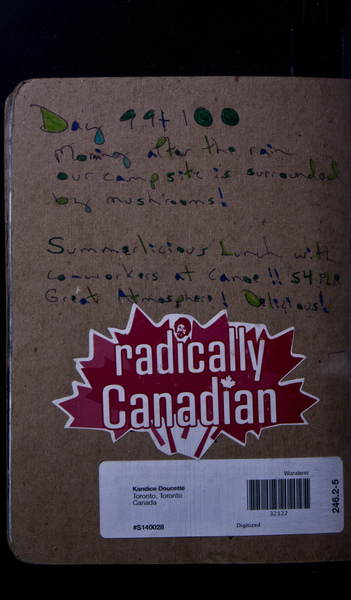 Day 99+100
Morning after the rain
our campsite is surrounded
by mushrooms!
Summerlicious Lunch with
coworkers at Canoe!! 54th FLR
Great Atmosphere! Delicious!
radically
Canadian
Wanderer
Kandice Doucette
Toronto, Toronto
Canada
32122
#S140028
Digitized
246.2-5